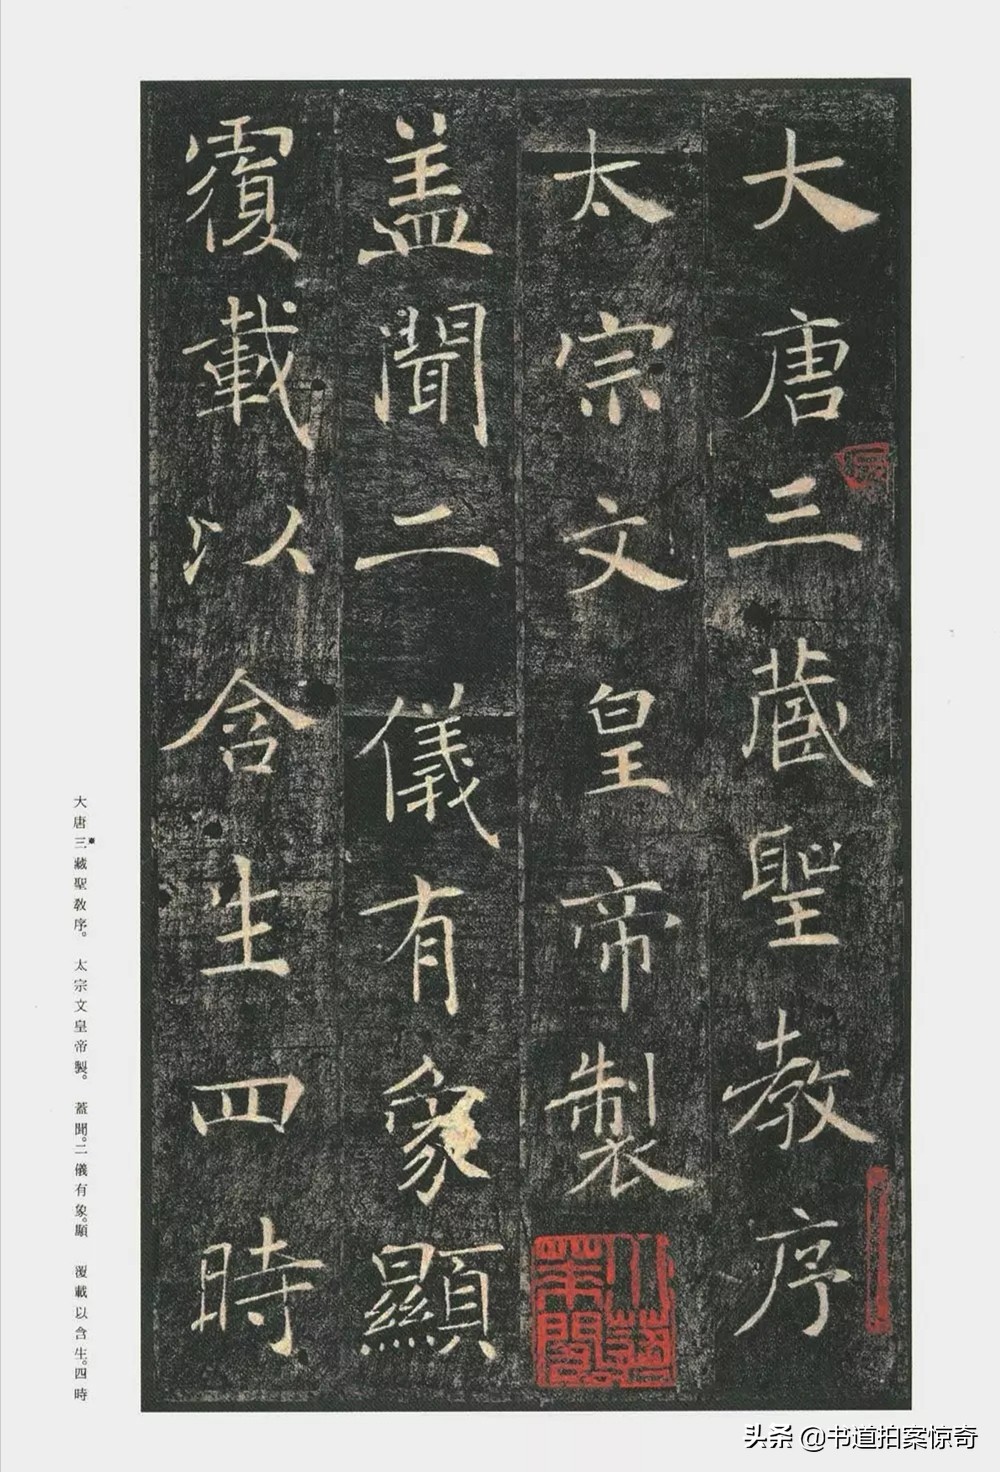 大唐三藏聖教序
太宗文皇帝製
蓋聞二儀有象顯
覆載以含生四時
大唐三藏聖教序。太宗文皇帝製。蓋聞。二儀有象。顯 覆載以含生。四時
头条 @书道拍案惊奇